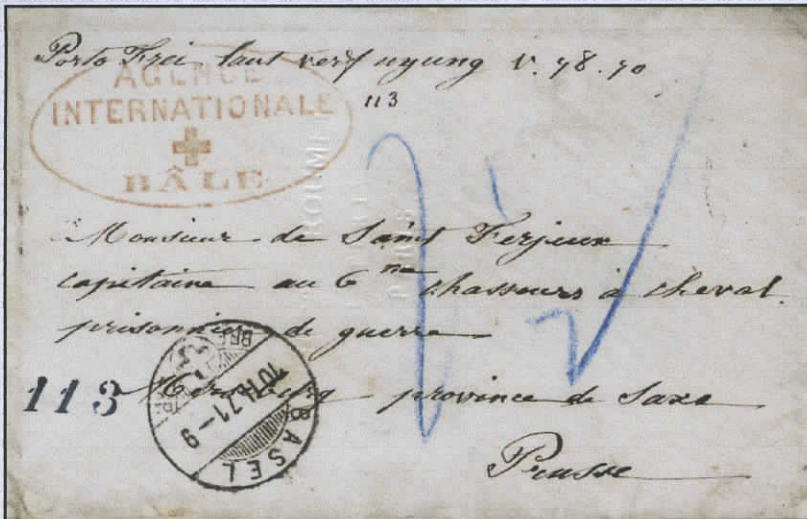 Porto Frei laut verfugung v. 7 8. 70
AGENCE
INTERNATIONALE
BÂLE
113
Monsieur de Saint Ferjeux
capitaine au 6me chasseurs à cheval.
prisonnier de guerre
113
province de Saxe
Prusse
BASEL
10 II 71-9